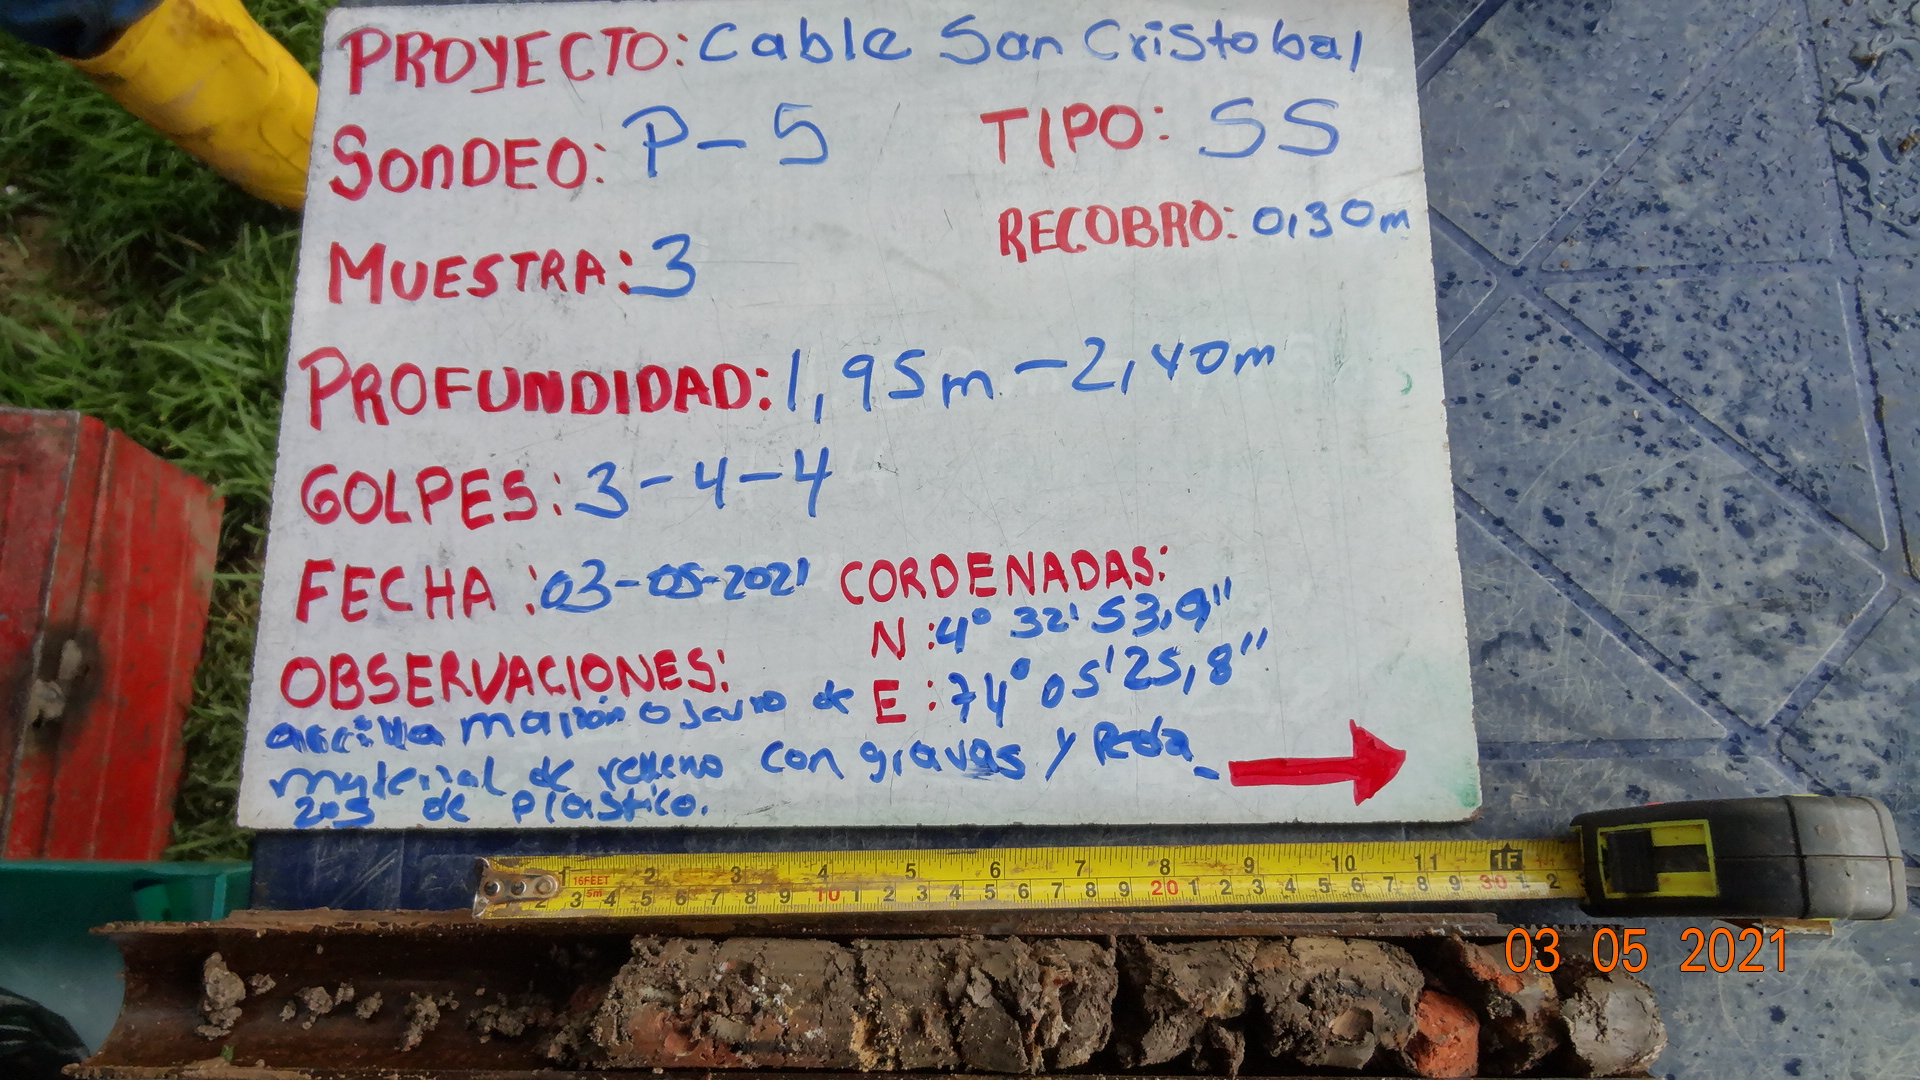 PROYECTO: Cable San Cristobal
SONDEO: P-5 TIPO: SS
MUESTRA: 3 RECOBRO: 0,30m
PROFUNDIDAD: 1,95m - 2,40m
GOLPES: 3-4-4
FECHA: 03-05-2021 CORDENADAS:
N: 4° 32' 53,9"
E: 74° 05' 25,8"
OBSERVACIONES:
arcilla marrón oscuro de
material de relleno con gravas y Peda_
zos de plastico.
1 2 3 4 5 6 7 8 9 10 11 1F
16FEET
5m
2 3 4 5 6 7 8 9 10 1 2 3 4 5 6 7 8 9 20 1 2 3 4 5 6 7 8 9 30 1 2
03 05 2021